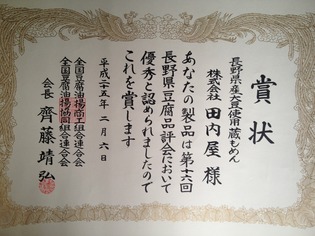 賞状
長野県産大豆使用蔵もめん
株式会社 田内屋 様
あなたの製品は第十六回
長野県豆腐品評会において
優秀と認められましたので
これを賞します
平成二十五年 二月 六日
全国豆腐油揚商工組合連合会
全国豆腐油揚協同組合連合会
会長 齊藤靖弘